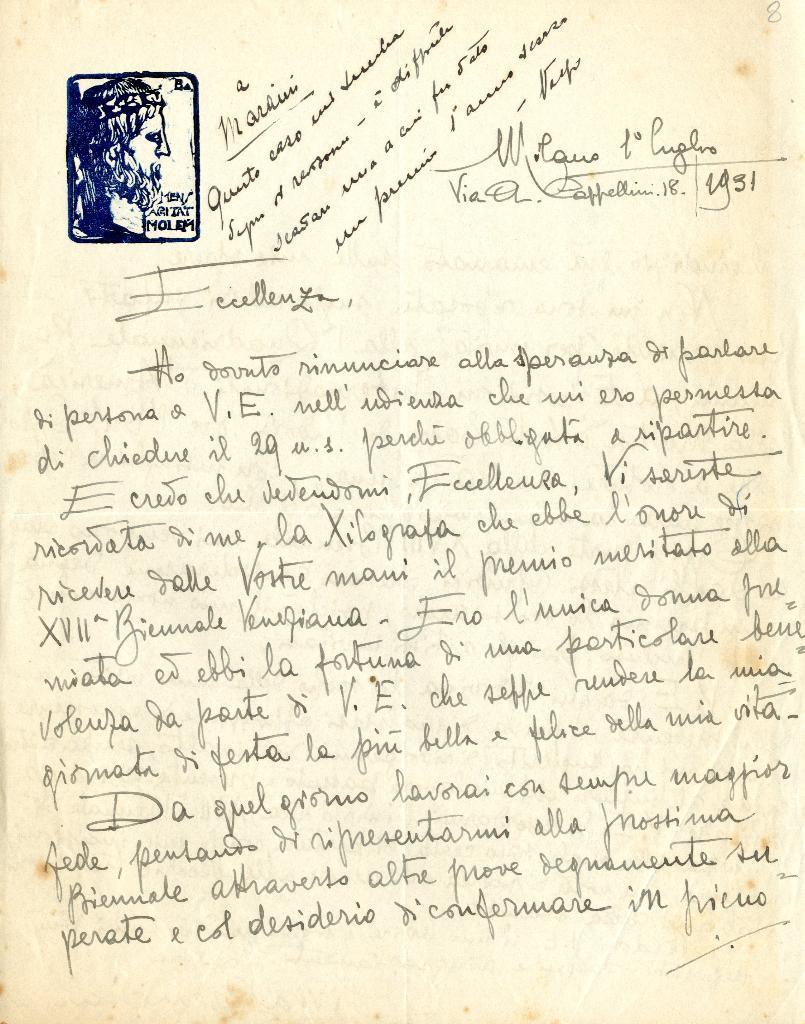 8
BA
MENS
AGITAT
MOLEM
a
Maraini
Questo caso mi sembra
degno di
scartare una a cui fu dato
un premio l'anno scorso
Volpi
Milano 1º luglio
Via A. Cappellini. 18. 1931
Eccellenza,
Ho dovuto rinunciare alla speranza di parlare
di persona a V. E. nell'udienza che mi ero permessa
di chiedere il 29 u. s. perché obbligata a ripartire.
E credo che vedendomi, Eccellenza, Vi sareste
ricordata di me - la Xilografa che ebbe l'onore di
ricevere dalle Vostre mani il premio meritato alla
XVIIª Biennale Veneziana - Ero l'unica donna pre=
miata ed ebbi la fortuna di una particolare bene=
volenza da parte di V. E. che seppe rendere la mia
giornata di festa la più bella e felice della mia vita -
Da quel giorno lavorai con sempre maggior
fede, pensando di ripresentarmi alla prossima
Biennale attraverso altre prove degnamente su=
perate e col desiderio di confermare in pieno